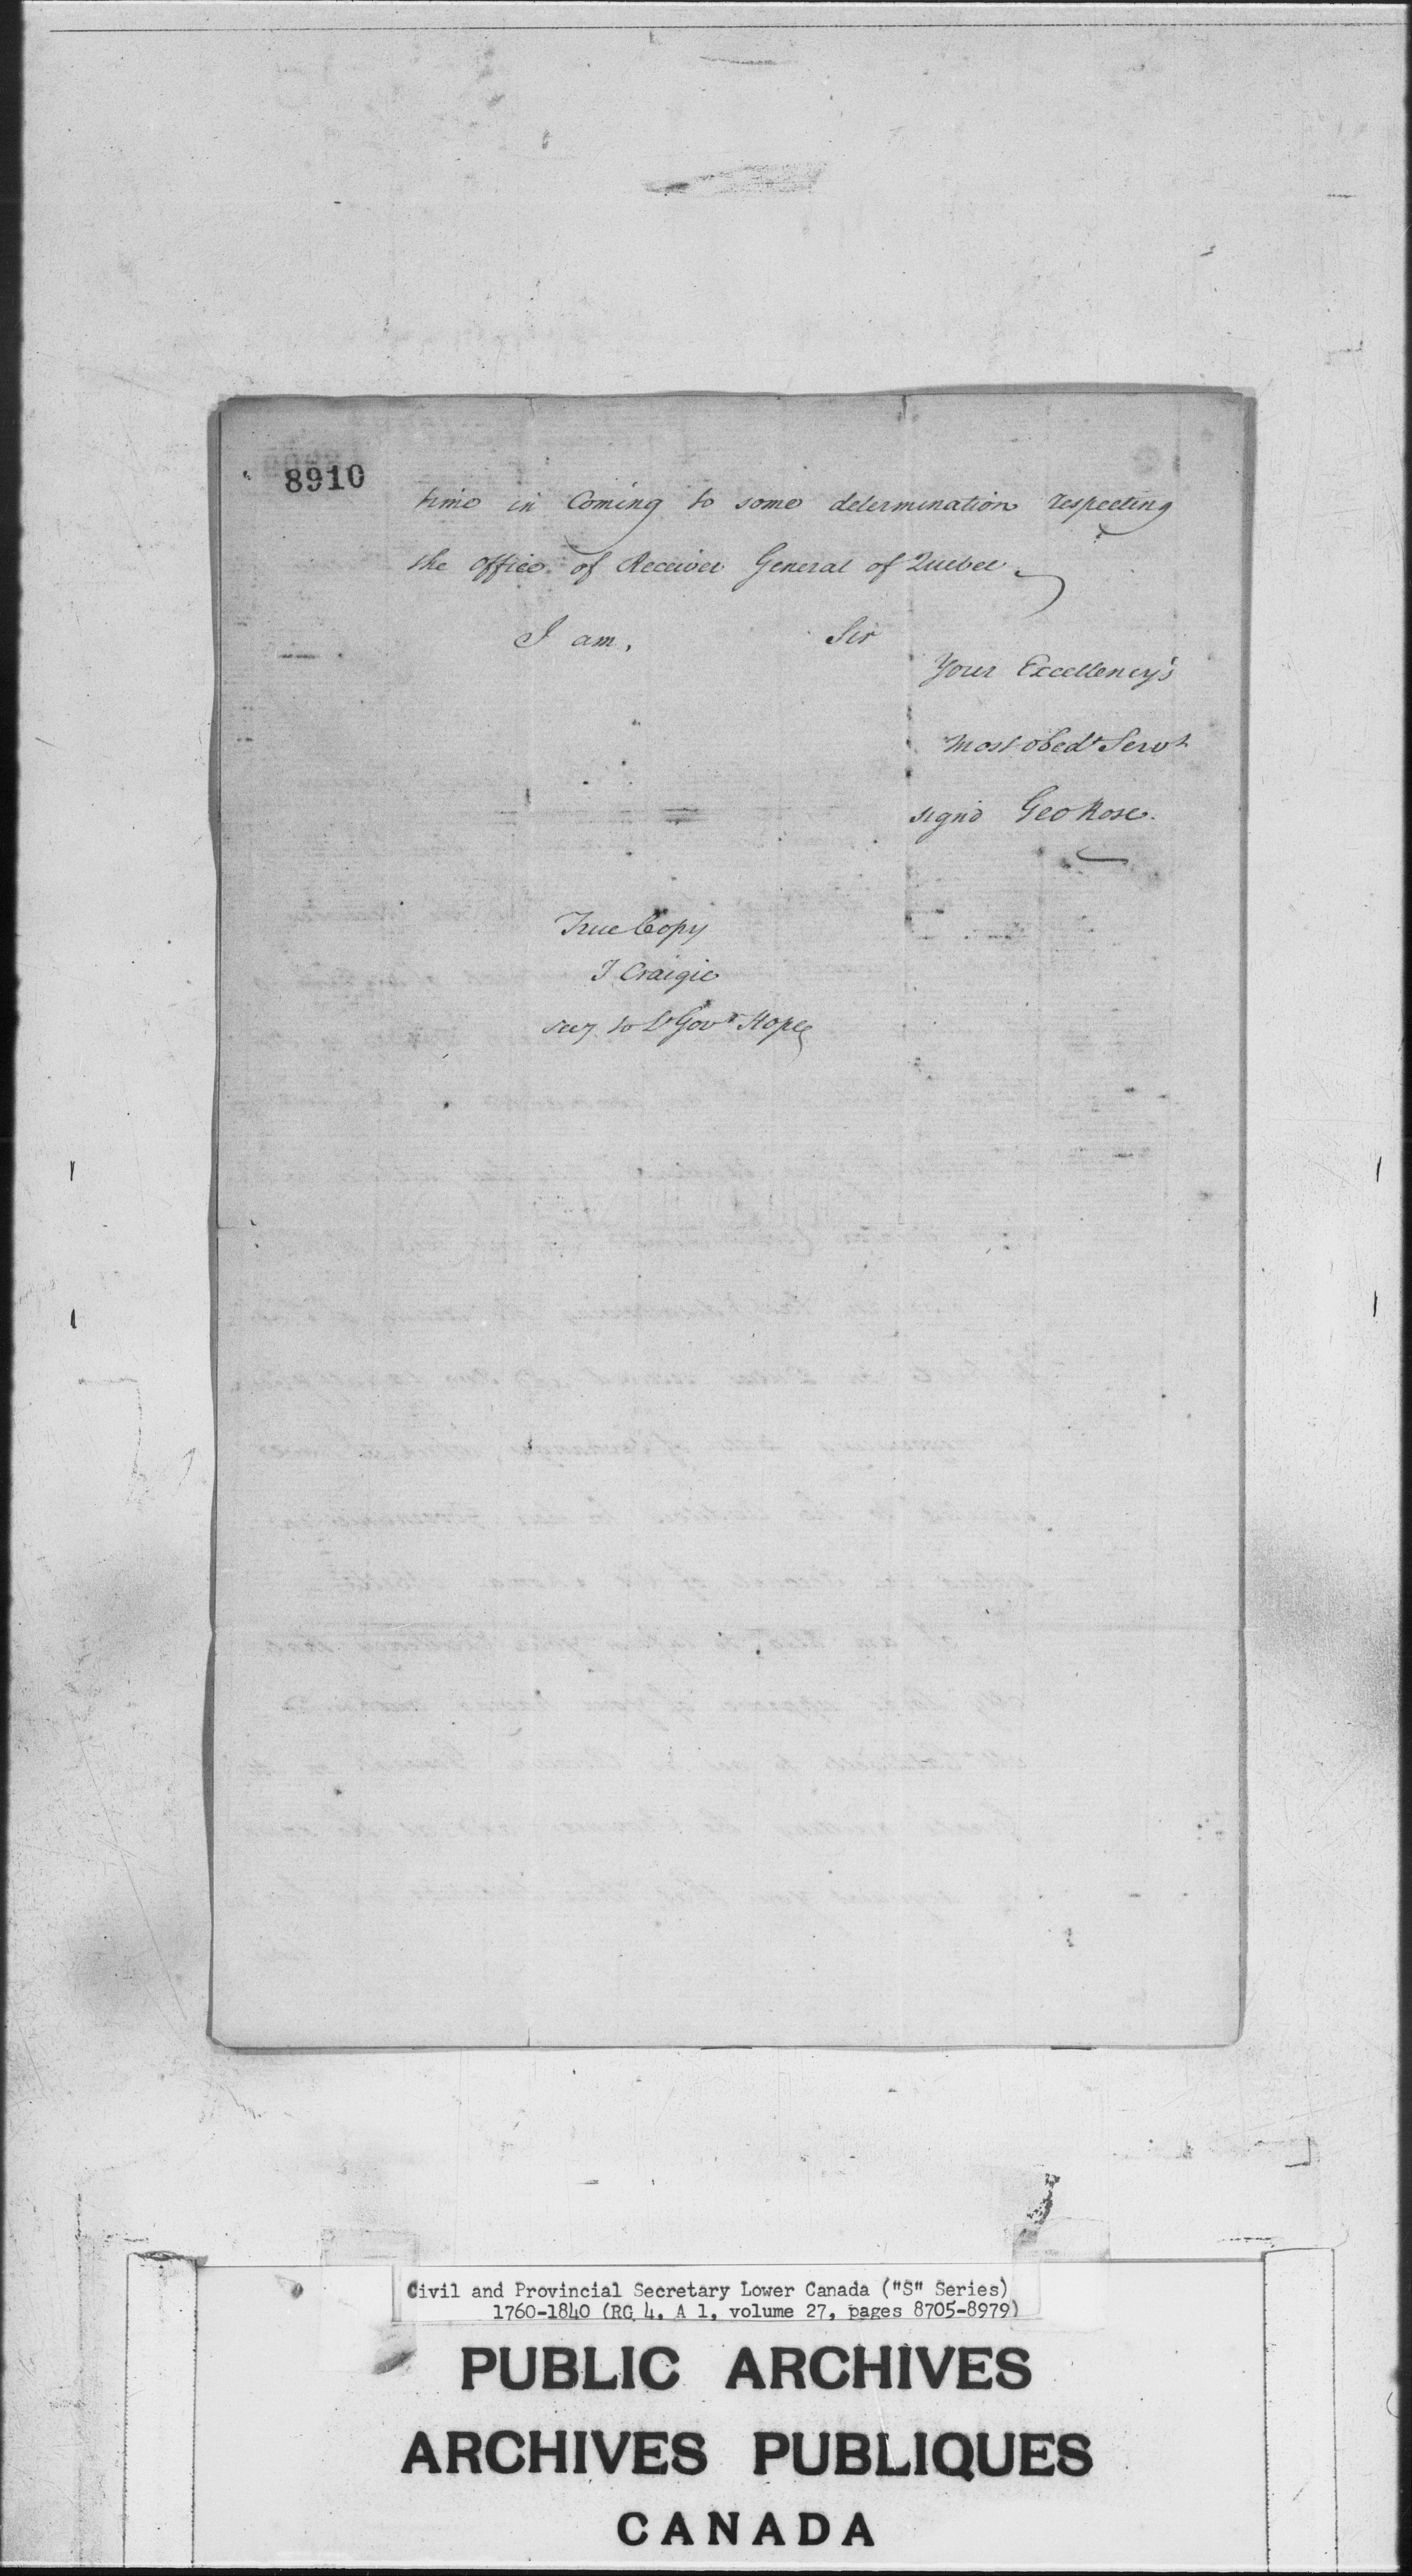 8910
time in Coming to some determination respecting
the office of Receiver General of Quebec
I am, Sir
Your Excellency's
most obedt Servt
signd Geo Rose.
True Copy
J Craigie
secy to Lt Govr Hope
Civil and Provincial Secretary Lower Canada ("S" Series)
1760-1840 (RG 4, A 1, volume 27, pages 8705-8979)
PUBLIC ARCHIVES
ARCHIVES PUBLIQUES
CANADA